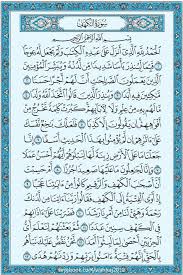 سورة الكهف
بسم الله الرحمن الرحيم
الحمد لله الذي أنزل على عبده الكتب ولم يجعل له عوجا
قيما لينذر بأسا شديدا من لدنه ويبشر المؤمنين
الذين يعملون الصلحت أن لهم أجرا حسنا
مكثين فيه أبدا وينذر الذين قالوا اتخذ الله ولدا
ما لهم به من علم ولا لآبائهم كبرت كلمة تخرج من
أفوههم إن يقولون إلا كذبا فلعلك بخع نفسك
على ءاثرهم إن لم يؤمنوا بهذا الحديث أسفا إنا
جعلنا ما على الأرض زينة لها لنبلوهم أيهم أحسن عملا
وإنا لجعلون ما عليها صعيدا جرزا أم حسبت
أن أصحب الكهف والرقيم كانوا من ءايتنا عجبا
إذ أوى الفتية إلى الكهف فقالوا ربنا ءاتنا من لدنك
رحمة وهيئ لنا من أمرنا رشدا فضربنا على ءاذانهم
في الكهف سنين عددا